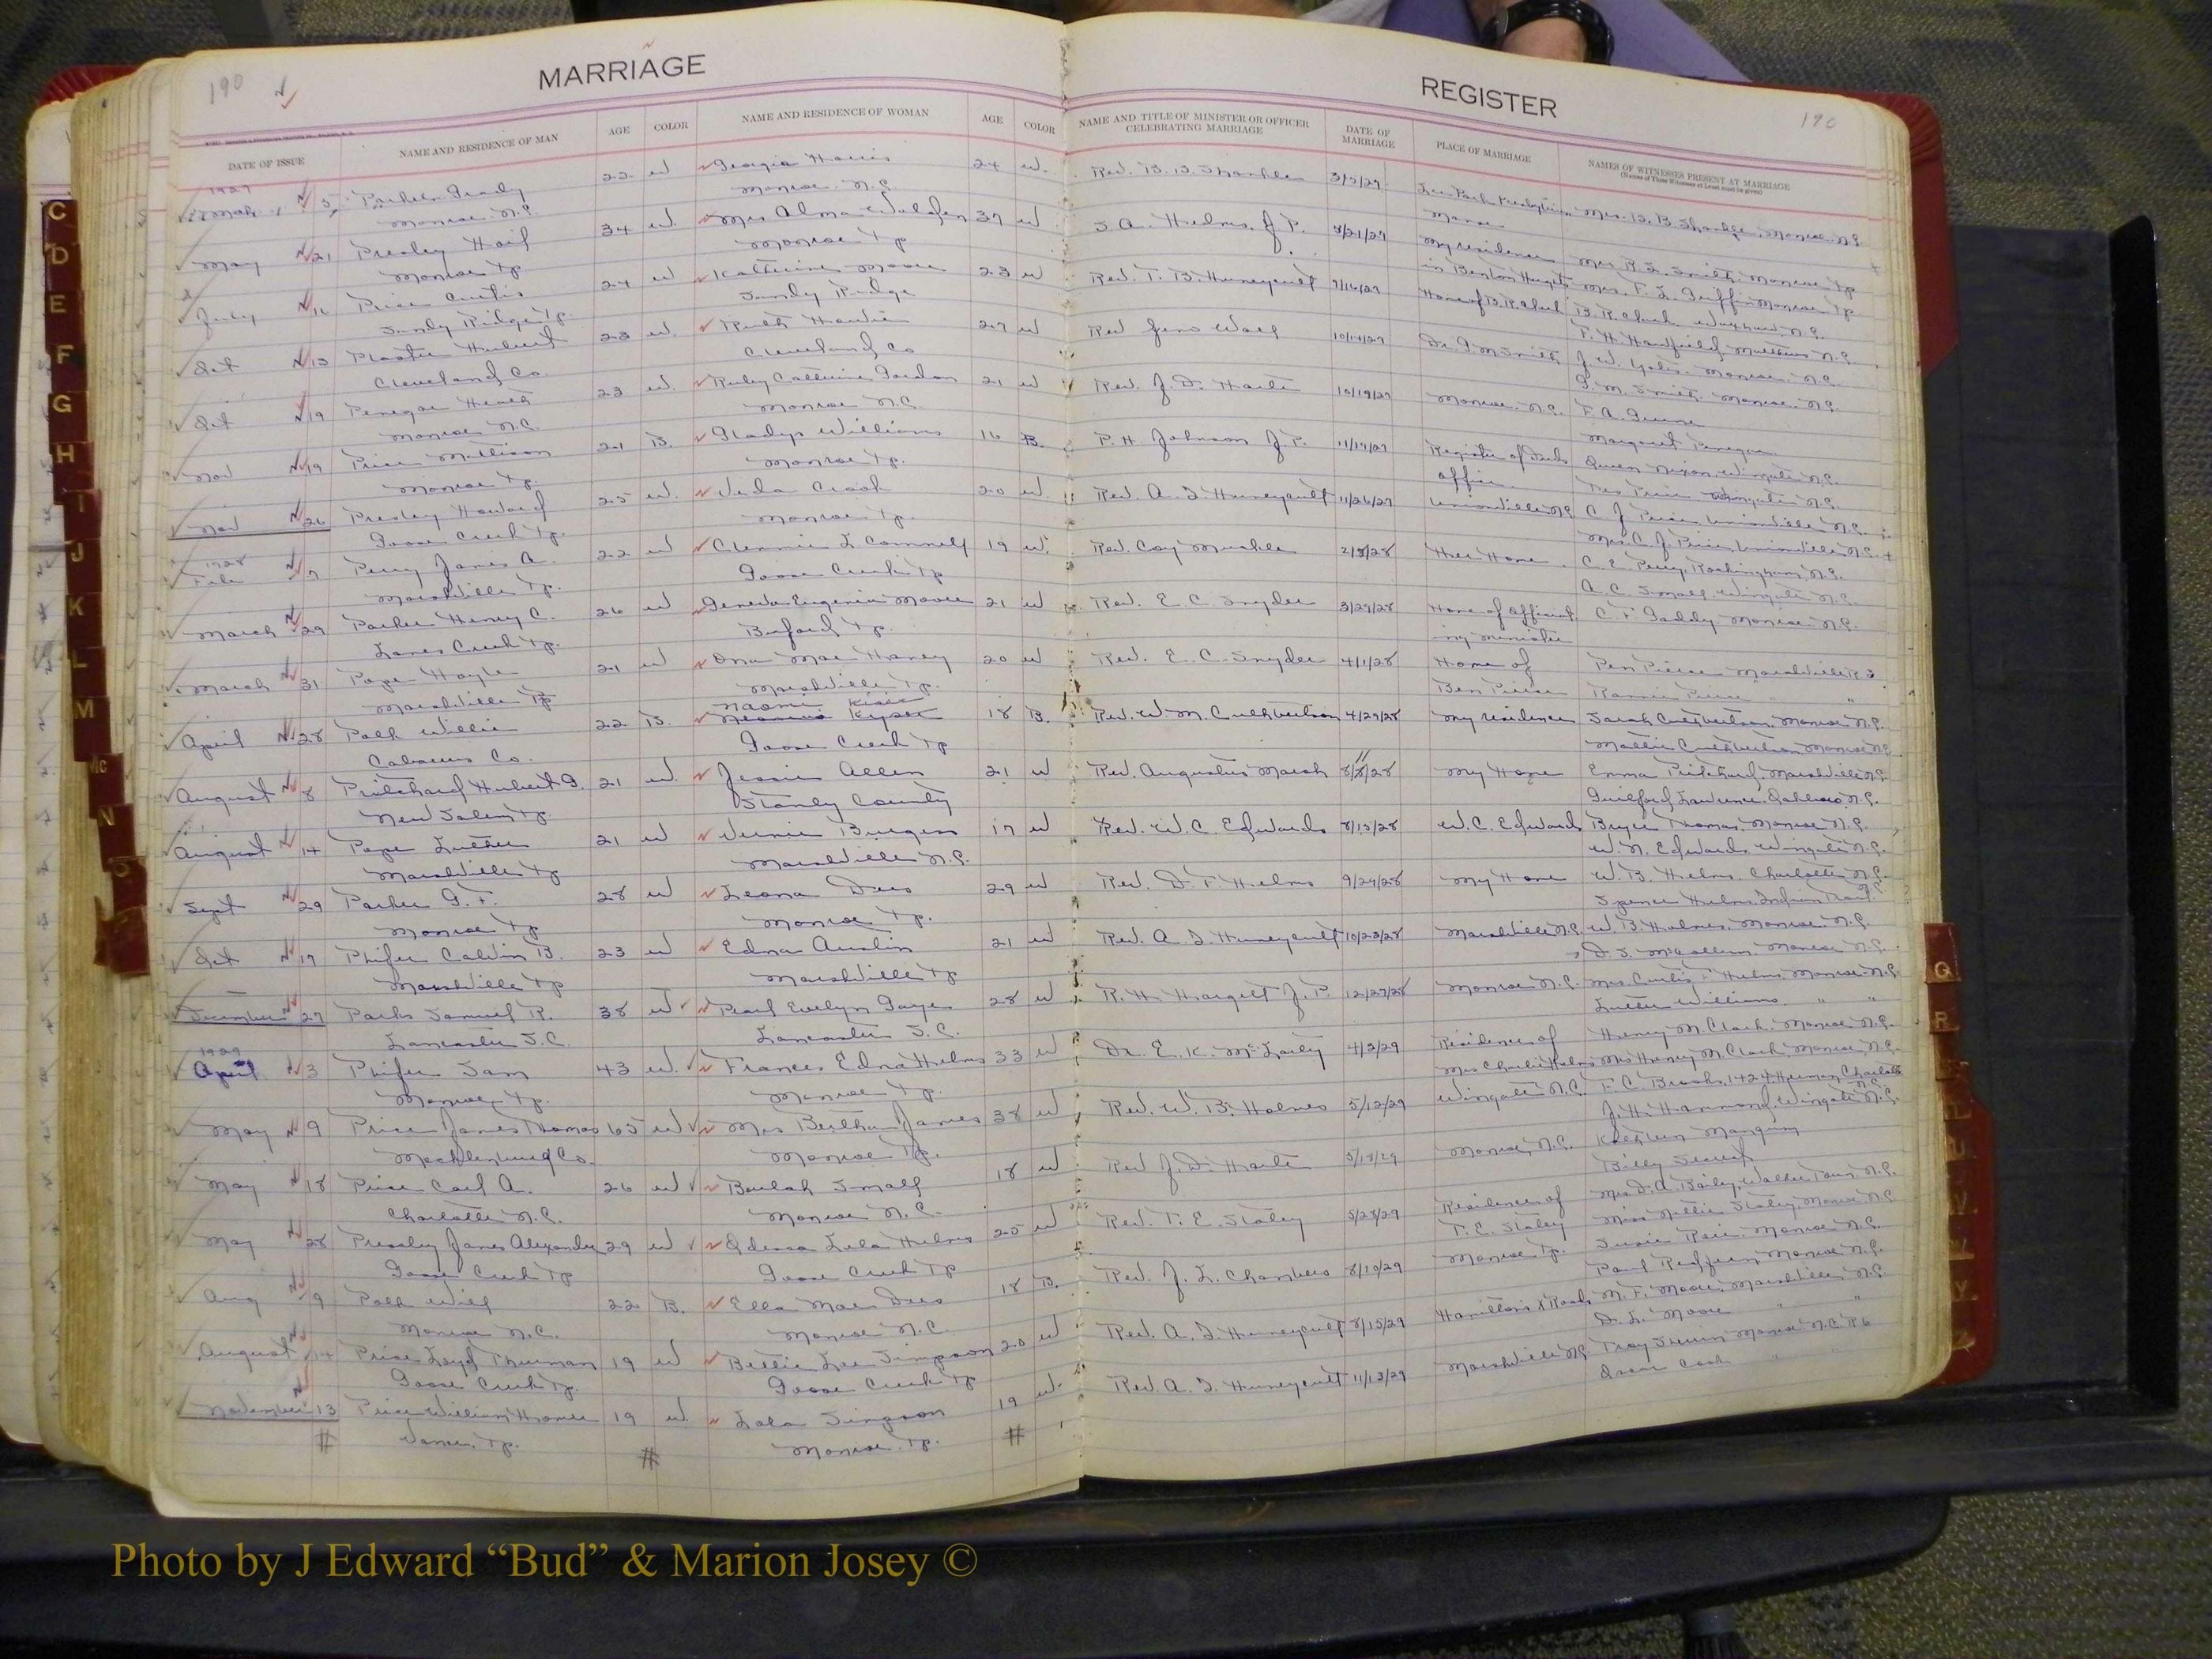 190
MARRIAGE
REGISTER
190
DATE OF ISSUE
NAME AND RESIDENCE OF MAN
AGE
COLOR
NAME AND RESIDENCE OF WOMAN
AGE
COLOR
NAME AND TITLE OF MINISTER OR OFFICER
CELEBRATING MARRIAGE
DATE OF
MARRIAGE
PLACE OF MARRIAGE
NAMES OF WITNESSES PRESENT AT MARRIAGE
(Names of Three Witnesses at Least must be given)
1927
Grady 22 W Georgia Harris 24 W. Rev. B. B. Shankle 3/5/27 Mrs. B. B. Shankle, Monroe, N.C.
Monroe N.C. Monroe N.C. Manse
May 21 Presley Hoil 34 W Mrs Alma 37 W S. A. Helms, J. P. 5/21/27 My residence Mrs. R. L. Smith, Monroe Tp
Monroe Tp Monroe Tp in Benton Heights Mrs. F. L. Griffin Monroe Tp
July 16 Price Curtis 24 W Katherine Moore 23 W Rev. T. B. Huneycutt 7/16/27 Home of B. R. Clark B. R. Clark Waxhaw, N.C.
Sandy Ridge Tp. Sandy Ridge
Oct 13 Plaster Hubert 23 W. Ruth Howie 27 W Rev 10/14/27 Dr. G. M. Smith J. W. Yates, Monroe, N.C.
Cleveland Co. Cleveland Co G. M. Smith Monroe, N.C.
Oct 19 Penegar Heath 23 W. Ruby Catherine Gordon 21 W Rev. J. D. Harte 10/19/27 Monroe, N.C. F. A.
Monroe N.C. Monroe N.C. Margaret Penegar
Nov 19 Price Mattison 21 B. Gladys Williams 16 B. P. H. Johnson J.P. 11/19/27 Register of Deeds Queen Nixon, Wingate N.C.
Monroe Tp. Monroe Tp. office Price Wingate N.C.
Nov 26 Presley Howard 25 W. Veda Crook 20 W Rev. A. L. Huneycutt 11/26/27 Unionville N.C. C. J. Price, Unionville N.C.
Goose Creek Tp. Monroe Tp. Mrs. C. J. Price, Unionville N.C.
1928
Feb 7 Perry James A. 22 W Clemmie L Connell 19 W. Rev. Coy Muckle 2/8/28 Home. C. E. Perry, Rockingham, N.C.
Marshville Tp. Goose Creek Tp A. C. Small, Wingate N.C.
March 29 Parker Henry C. 26 W Geneva Eugenia Moore 21 W Rev. E. C. Snyder 3/29/28 Home of officiat C. F. Gaddy Monroe N.C.
Lanes Creek Tp. Buford Tp. ing minister
March 31 Pope Hoyle 21 W Ona Mae Haney 20 W Rev. E. C. Snyder 4/1/28 Home of Ben Pierce Marshville R 3
Marshville Tp Marshville Tp. Ben Pierce Pierce " "
Naomi Kiser
April 28 Polk Willie 22 B. Keyser 18 B. Rev. W. M. Cuthbertson 4/29/28 My residence Sarah Cuthbertson, Monroe N.C.
Cabarrus Co. Goose Creek Tp Mattie Cuthbertson Monroe N.C.
August 8 Pritchard Hubert G. 21 W. Jessie Allen 21 W Rev. Augustus Marsh 8/8/28 My Home Emma Pritchard, Marshville N.C.
New Salem Tp. Stanly County Guilford Lawrence, Oakboro, N.C.
August 14 Pope Luther 21 W Vernie Burgess 17 W Rev. W. C. Edwards 8/15/28 W. C. Edwards Bryce Thomas, Monroe N.C.
Marshville Tp Marshville N.C. W. N. Edwards, Wingate N.C.
Sept 29 Parker G. F. 28 W Leona Dees 29 W Rev. D. F. Helms 9/29/28 My Home W. B. Helms, Charlotte N.C.
Monroe Tp Monroe Tp. Spencer Helms, Indian Trail, N.C.
Oct 17 Phifer Calvin B. 23 W Edna Austin 21 W Rev. A. L. Huneycutt 10/23/28 Marshville N.C. W. B. Holmes, Monroe N.C.
Marshville Tp Marshville Tp D. S. McCollum, Monroe N.C.
December 27 Parks Samuel R. 38 W Pearl Evelyn Gayer 28 W R. H. Hargett J. P. 12/27/28 Monroe N.C. Mrs. Curtis F Helms, Monroe N.C.
Lancaster S.C. Lancaster S.C. Luther Williams " "
1929
April 3 Phifer Sam 43 W. Frances Edna Helms 33 W Dr. E. K. McLarty 4/3/29 Residence of Henry M. Clark, Monroe N.C.
Monroe Tp. Monroe Tp. Mrs Charlie Helms Mrs Henry M. Clark, Monroe, N.C.
May 9 Price James Thomas 65 W Mrs Bertha James 38 W Rev. W. B. Holmes 5/12/29 Wingate N.C. F. C. Brooks, 1424 Charlotte N.C.
Mecklenburg Co. Monroe Tp. J. H. Hammond, Wingate N.C.
May 18 Price Carl A. 26 W Beulah Small 18 W Rev. J. D. Harte 5/18/29 Monroe, N.C. Kathleen Mangum
Charlotte N.C. Monroe N.C. Billy
May 28 Pressley James Alexander 29 W Odessa Lela Helms 25 W Rev. T. E. Staley 5/28/29 Residence of Mrs. D. A. Bailey, N.C.
Goose Creek Tp Goose Creek Tp T. E. Staley Miss Nellie Staley, Monroe N.C.
Aug 9 Polk Will 22 B. Ella Mae Dees 18 B. Rev. J. L. Chambers 8/10/29 Monroe Tp. Susie Monroe N.C.
Monroe N.C. Monroe N.C. Paul Redfern, Monroe N.C.
August 14 Price Loyd Thurman 19 W Bettie Lee Simpson 20 W Rev. A. L. Huneycutt 8/15/29 Hamilton's X Roads M. F. Moore, Marshville, N.C.
Goose Creek Tp. Goose Creek Tp D. L. Moore " "
November 13 Price William Homer 19 W. Lola Simpson 19 W. Rev. A. L. Huneycutt 11/13/29 Marshville N.C. Troy Monroe N.C. R 6
Vance Tp. Monroe Tp. Oscar Cook " "
# # #
C
D
E
F
G
H
I
J
K
L
M
Mc
N
O
Q
R
Photo by J Edward “Bud” & Marion Josey ©